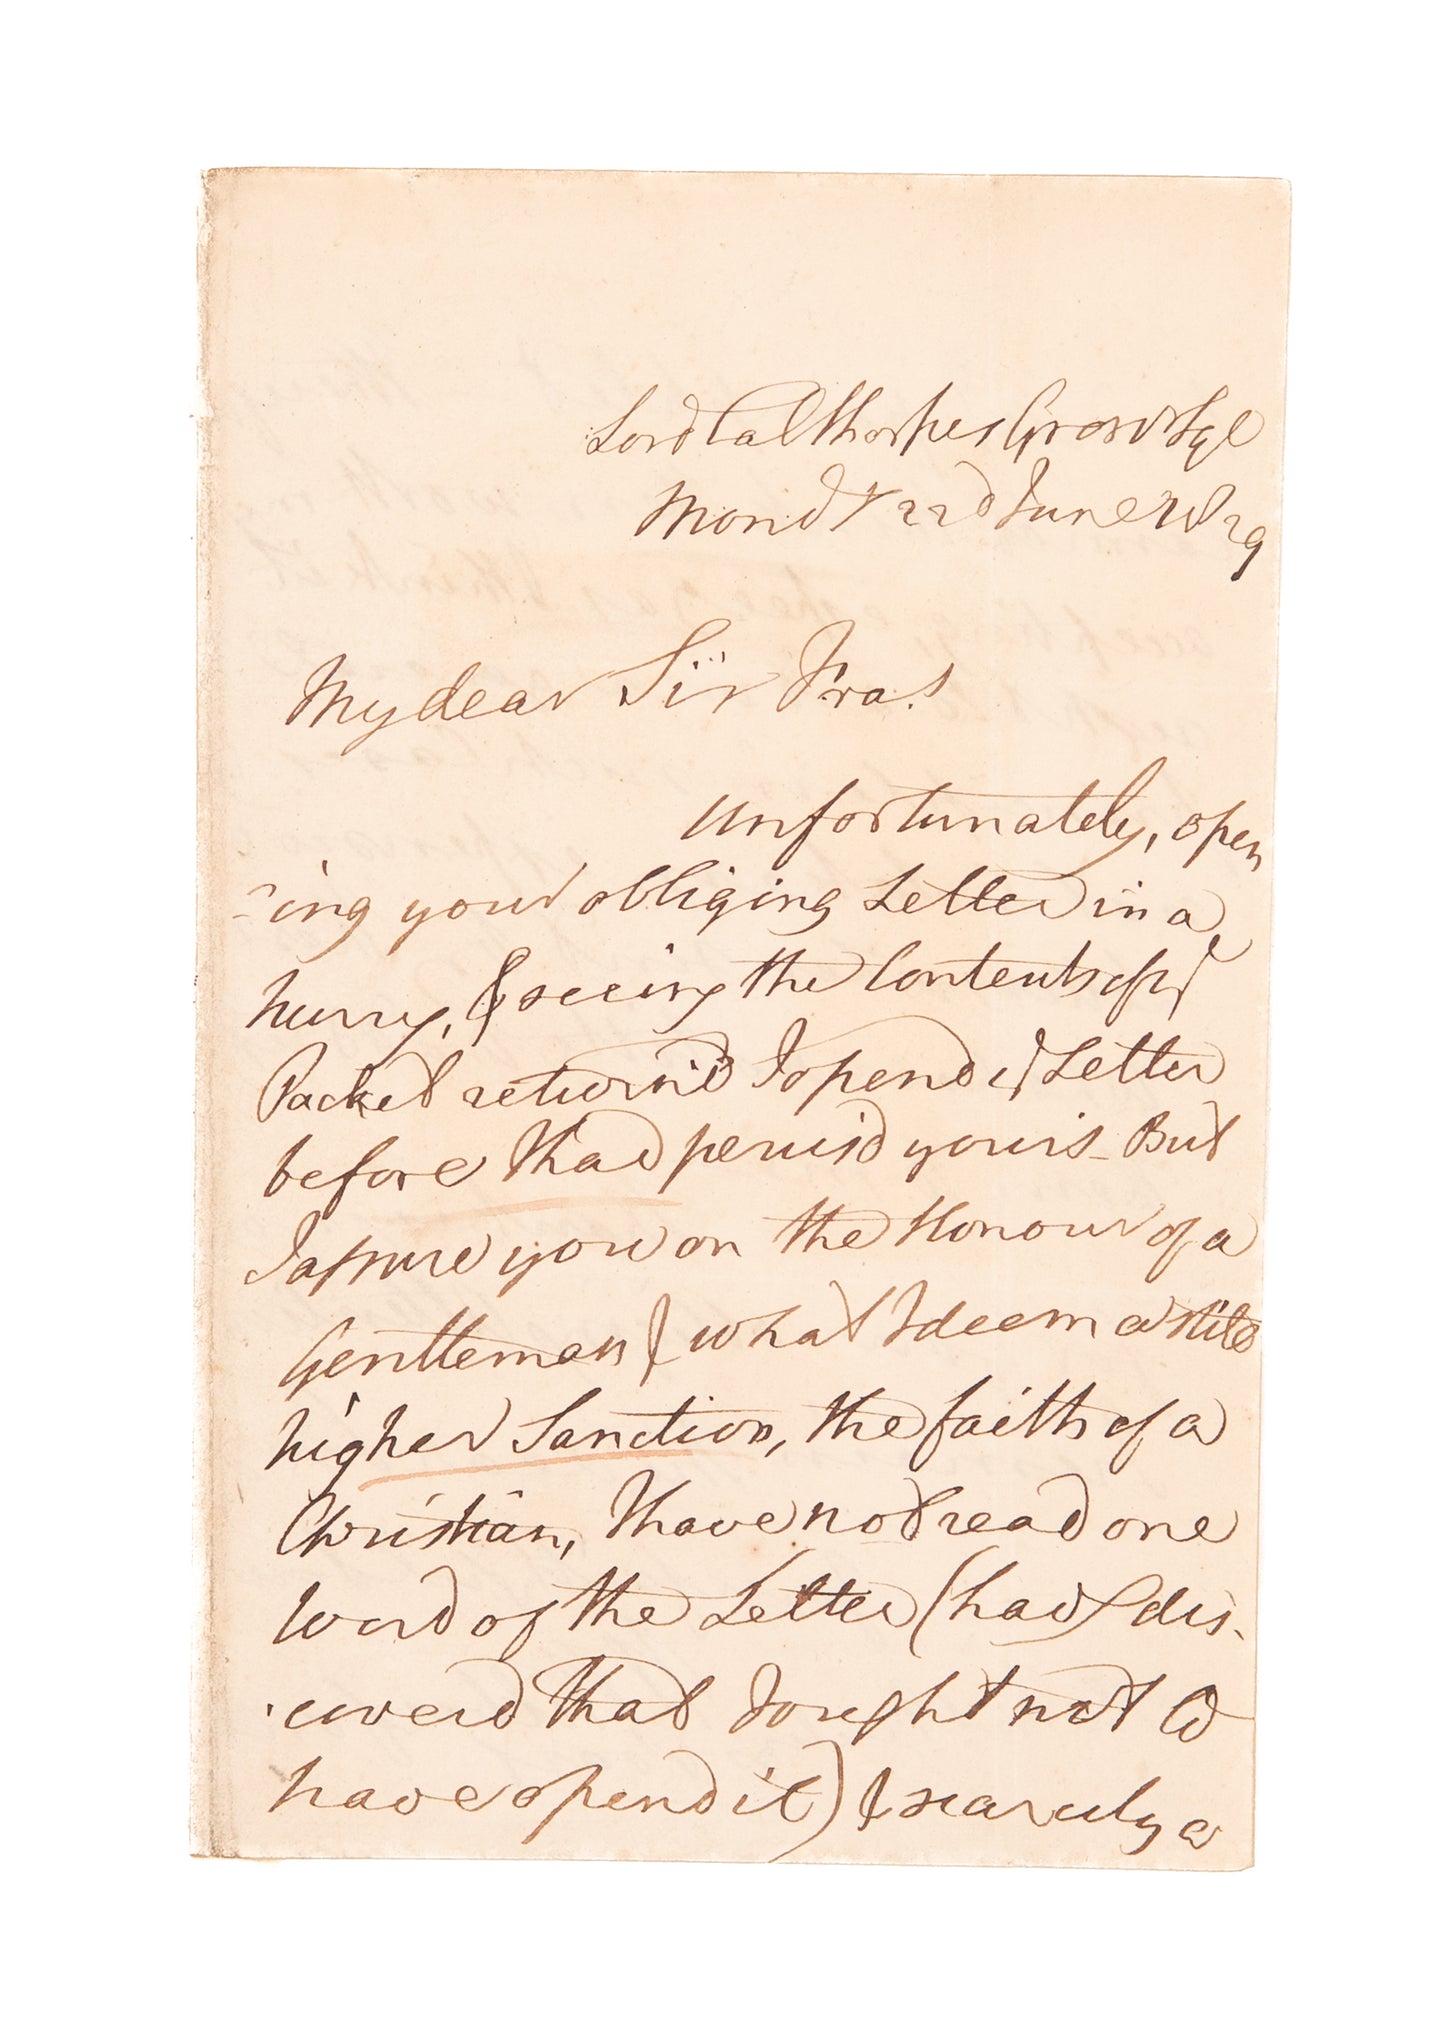 Lord Calthorpes Grosvr Sqe
Mondy 22d June 1829
My dear Sir Fras
Unfortunately, open
-ing your obliging Letter in a
hurry, & seeing the Contents of ye
Packet return'd I opend ye Letter
before I had perus'd yours_ But
I assure you on the Honour of a
Gentleman & what I deem a still
higher Sanction, the faith of a
Christian, I have not read one
Word of the Letter (havg dis-
-coverd that I ought not to
have opend it) & scarcely a